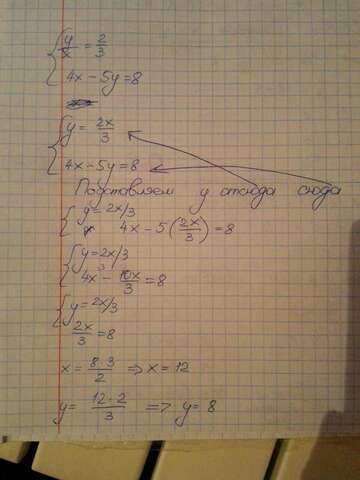 y/x = 2/3
4x - 5y = 8
y = 2x/3
4x - 5y = 8
Подставляем y отсюда сюда
y = 2x/3
4x - 5(2x/3) = 8
y = 2x/3
4x - 10x/3 = 8
y = 2x/3
2x/3 = 8
x = 8·3/2 => x = 12
y = 12·2/3 => y = 8